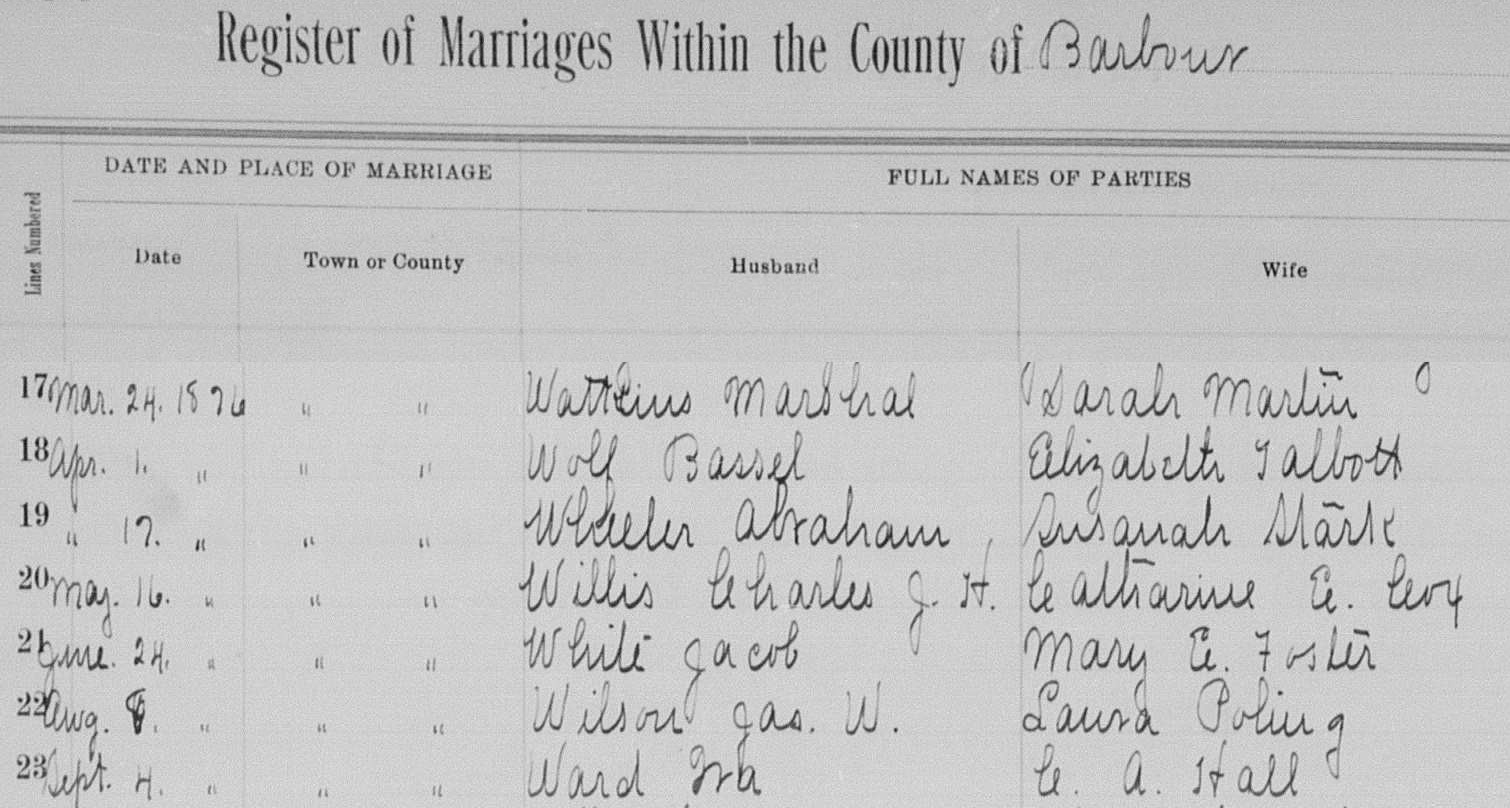 Register of Marriages Within the County of Barbour
Lines Numbered
DATE AND PLACE OF MARRIAGE FULL NAMES OF PARTIES
Date Town or County Husband Wife
17 Mar. 24. 1876 " " Wattkins Marshal Sarah Martin
18 Apr. 1. " " " Wolf Bassel Elizabeth Talbott
19 " 17. " " " Wheeler Abraham Susanah Stark
20 May. 16. " " " Willis Charles J. H. Catharine E. Coox
21 June. 24. " " " White Jacob Mary E. Foster
22 Aug. 8. " " " Wilson Jas. W. Laura Poling
23 Sept. 4. " " " Ward Ira C. A. Hall